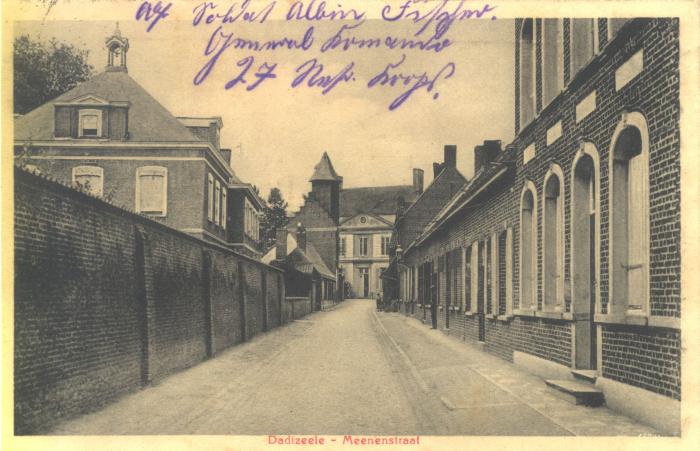 Soldat Albin Fischer.
General Komando
27 Res. Korps.
Dadizeele - Meenenstraat